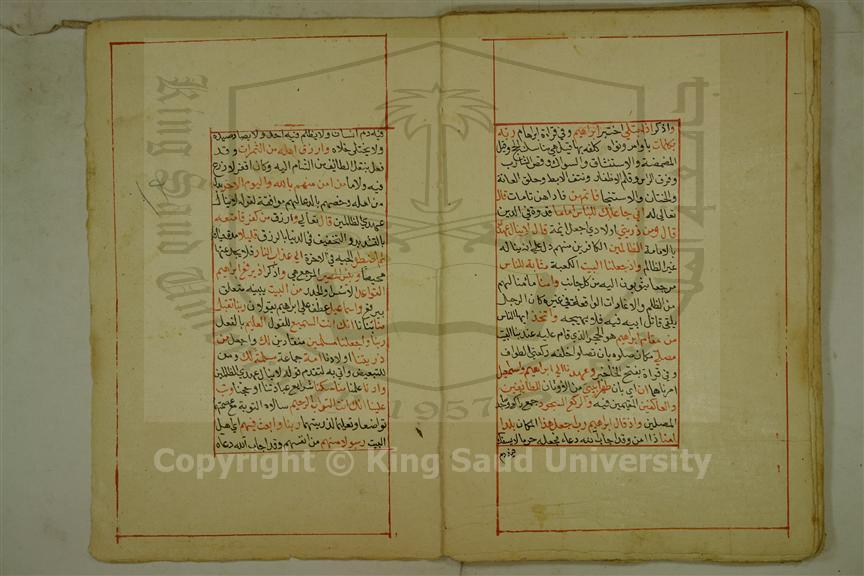 واذكر اذ ابتلى اختبر ابراهيم وفي قراءة ابراهام ربه
بكلمات باوامر ونواه كلفه بها قيل هي مناسك الحج وقيل
المضمضة والاستنشاق والسواك وقص الشارب
وفرق الراس وقلم الاظفار ونتف الابط وحلق العانة
والختان والاستنجا فاتمهن فاداهن تامات قال
تعالى له اني جاعلك للناس اماما قدوة في الدين
قال ومن ذريتي اولادي اجعل ايمة قال لا ينال عهدي
بالامامة الظالمين الكافرين منهم دل على انه ينال
غير الظالم واذ جعلنا البيت الكعبة مثابة للناس
مرجعا يثوبون اليه من كل جانب وامنا مامنا لهم
من الظلم والاغارات الواقعة في غيره كان الرجل
يلقى قاتل ابيه فيه فلا يهيجه واتخذوا ايها الناس
من مقام ابراهيم هو الحجر الذي قام عليه عند بنا البيت
مصلى مكان صلاة بان تصلوا خلفه ركعتي الطواف
وفي قراءة بفتح الخا خبر وعهدنا الى ابراهيم واسمعيل
امرناهما ان اي بان طهرا بيتي من الاوثان للطائفين
والعاكفين المقيمين فيه والركع السجود جمع راكع وساجد
المصلين واذ قال ابراهيم رب اجعل هذا المكان بلدا
امنا ذا امن وقد اجاب الله دعاه فجعله حرما لا يسفك
فيه دم
فيه دم انسان ولا يظلم فيه احد ولا يصاد صيده
ولا يختلى خلاه وارزق اهله من الثمرات وقد
فعل بنقل الطائف من الشام اليه وكان اقفر لا زرع
فيه ولا ما من امن منهم بالله واليوم الاخر بدل
من اهله وخصهم بالدعا لهم موافقة لقوله لا ينال
عهدي الظالمين قال تعالى وارزق من كفر فامتعه
بالتشديد والتخفيف في الدنيا بالرزق قليلا مدة حياته
ثم اضطره الجيه في الاخرة الى عذاب النار فلا يجد عنها
محيصا وبئس المصير المرجع هي واذكر اذ يرفع ابراهيم
القواعد الاسس والجدر من البيت يبنيه متعلق
بيرفع واسماعيل عطف على ابراهيم يقولان ربنا تقبل
منا بنانا انك انت السميع للقول العليم بالفعل
ربنا واجعلنا مسلمين منقادين لك واجعل من
ذريتنا اولادنا امة جماعة مسلمة لك ومن
للتبعيض واتى به لتقدم قوله لا ينال عهدي الظالمين
وارنا علمنا مناسكنا شرايع عبادتنا او حجنا وتب
علينا انك انت التواب الرحيم سالاه التوبة مع عصمتهما
تواضعا وتعليما لذريتهما ربنا وابعث فيهم اي اهل
البيت رسولا منهم من انفسهم وقد اجاب الله دعاه
King Saud University
1957
Copyright © King Saud University